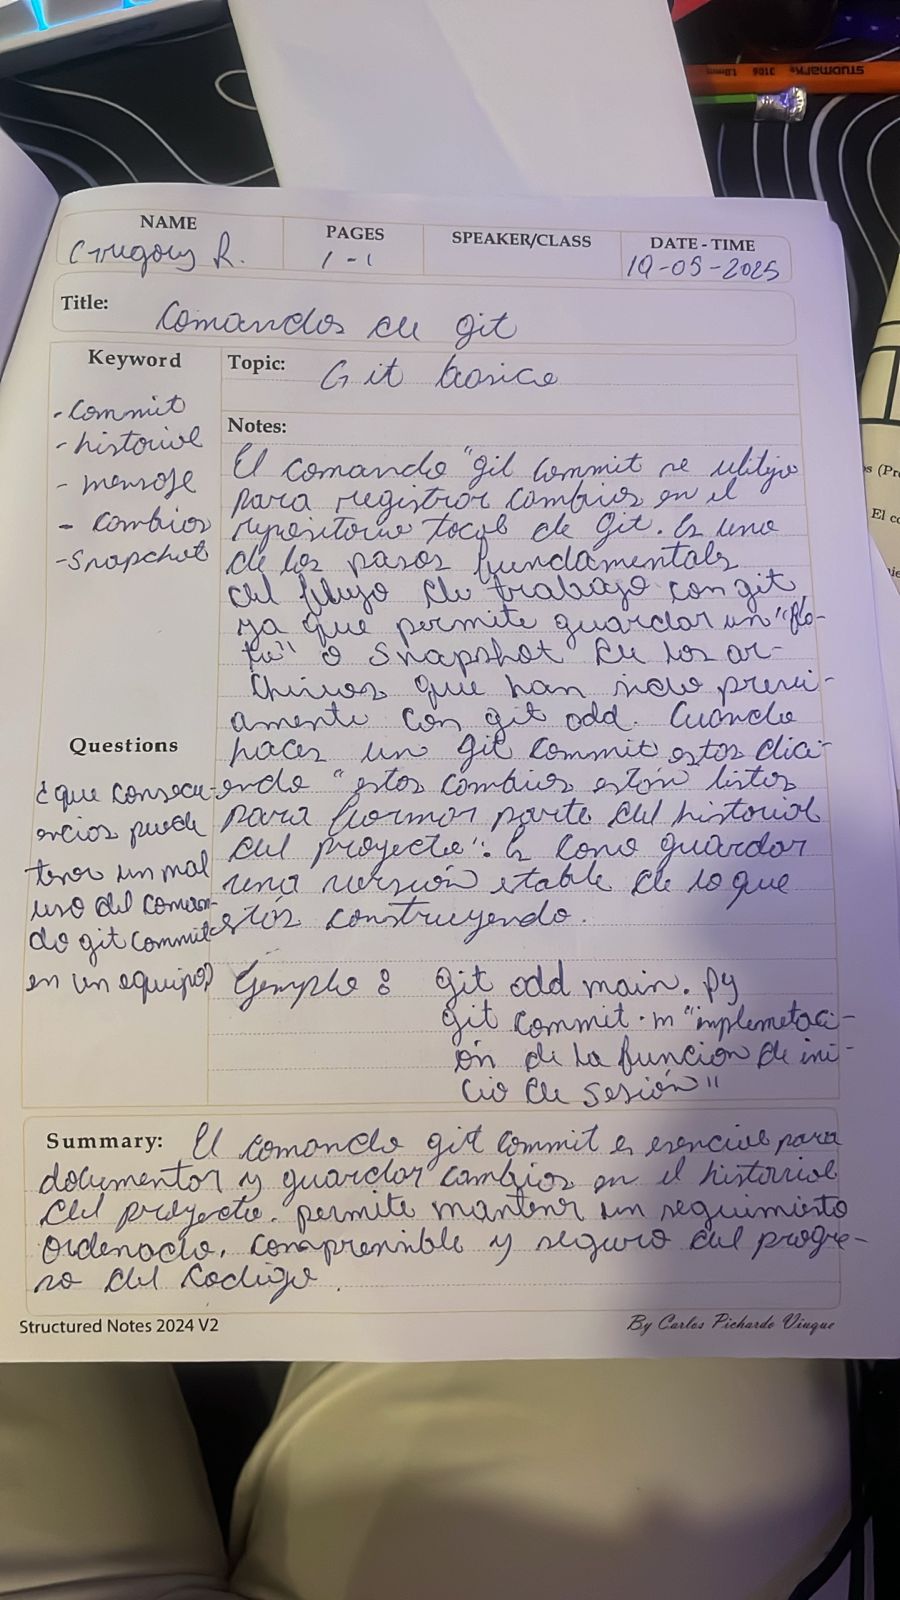 STUDMARK 3106 1.0mm
NAME
Gregory R.
PAGES
1-1
SPEAKER/CLASS
DATE - TIME
19-05-2025
Title: Comandos de git
Keyword
- Commit
- historial
- mensaje
- Cambios
- Snapchot
Topic: Git basico
Notes:
El comando "git commit se utiliza
para registrar cambios en el
repositorio local de Git. Es uno
de los pasos fundamentals
del flujo de trabajo con git,
ya que permite guardar un "fo-
to" o Snapshot de los ar-
chivos que han sido previ-
amente con git add. Cuando
haces un git commit estas dici-
endo "estos cambios están listos
para formar parte del historial
del proyecto". Es como guardar
una versión etable de lo que
estás construyendo.
Questions
¿que consecu-
encias puede
tener un mal
uso del coman-
do git commit
en un equipo?
Ejemplo: git add main.py
git commit -m "implemetaci-
ón de la funcion de ini-
cio de sesión"
Summary: El comando git commit es esencial para
documentar y guardar cambios en el historial
del proyecto. permite mantener un seguimiento
ordenado, comprensible y seguro del progre-
so del codigo.
Structured Notes 2024 V2
By Carlos Pichardo Viuque
s (Pr
El co